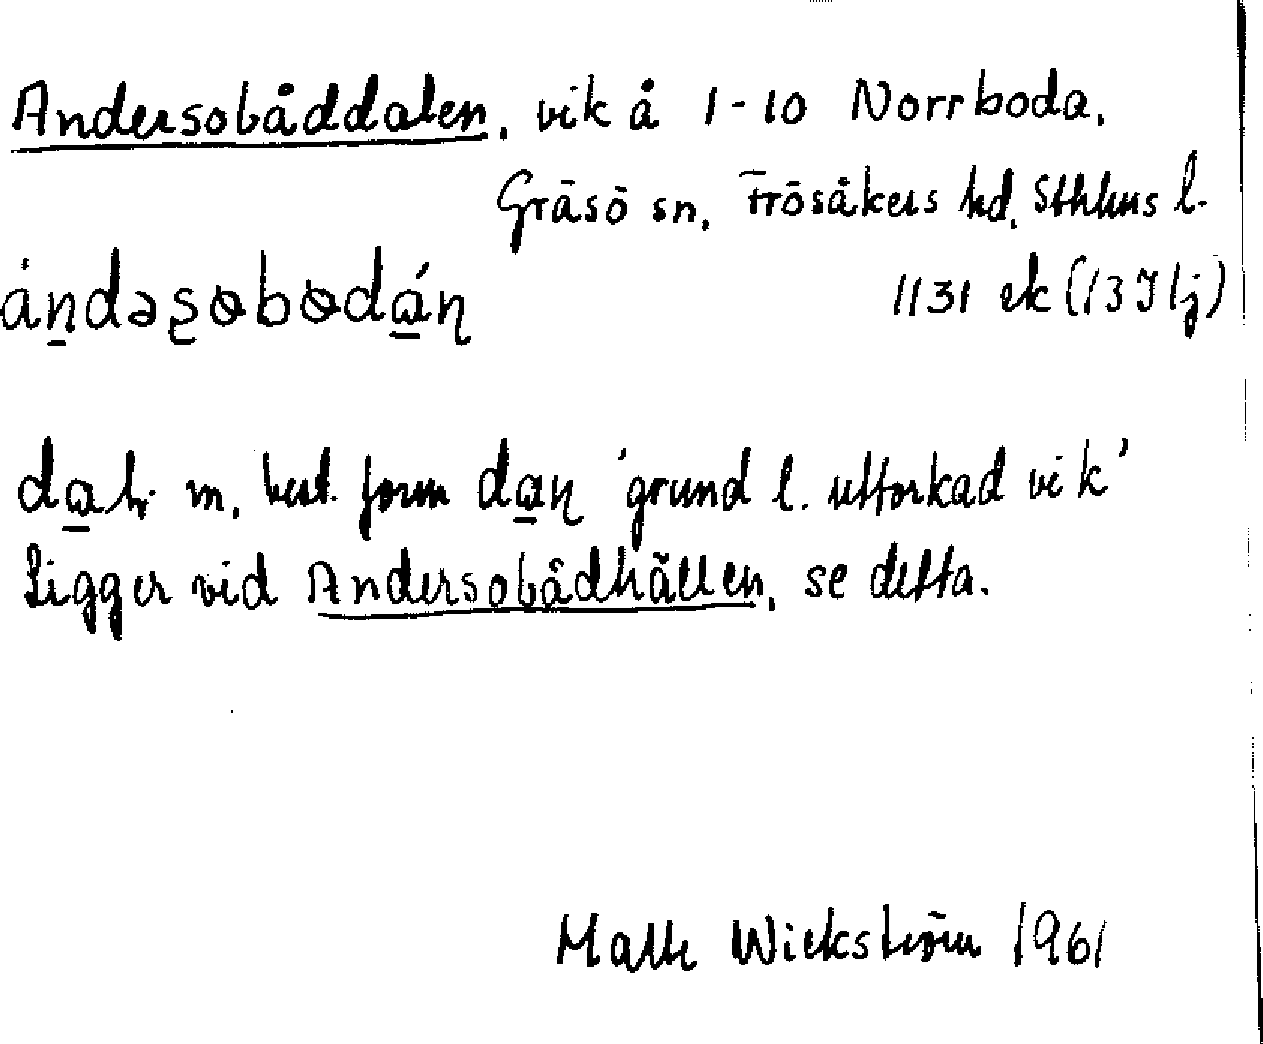 Andersobåddalen, vik å 1-10 Norrboda,
Gräsö sn, Frösåkers hd, Sthlms l.
ándəʂɵbɵdά̲ɳ 1131 ek (13I 1j)
dα̲ɫ m, best. form dα̲ɳ 'grund l. uttorkad vik'
Ligger vid Andersobådhällen, se detta.
Malte Wickström 1961